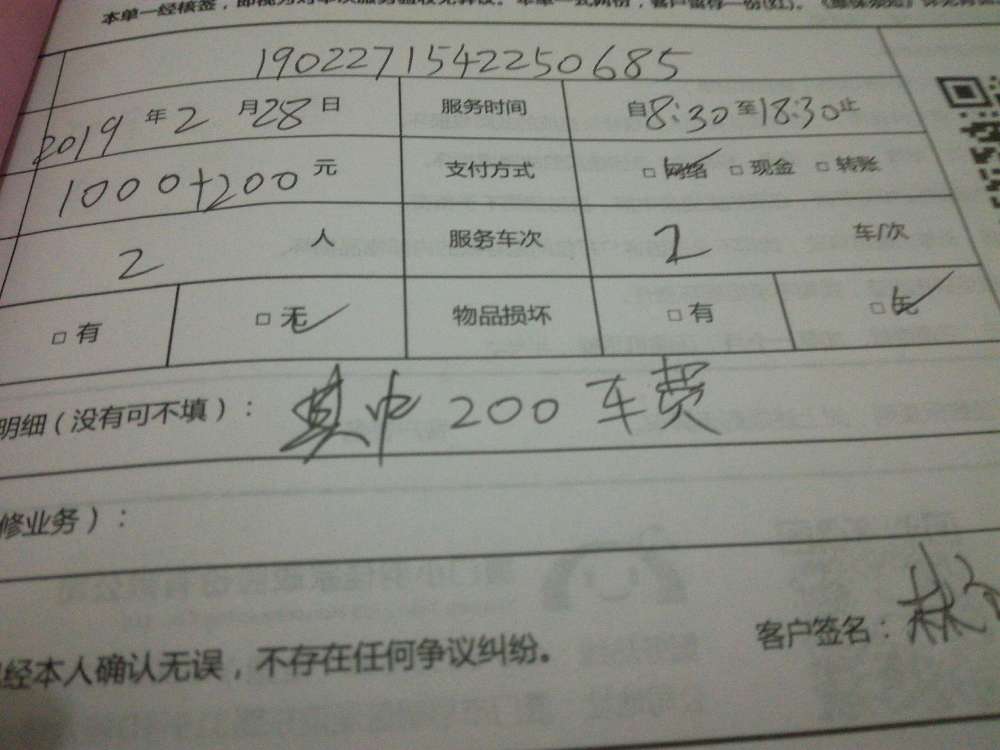 本单一经核签，即视为对本次服务验收无异议。本单一式两份，客户留存一份(红)。
190227154225​0685
2019 年 2 月 28 日 服务时间 自 8:30 至 18:30 止
1000+200 元 支付方式 □ 网络 □ 现金 □ 转账
2 人 服务车次 2 车/次
□ 有 □ 无 物品损坏 □ 有 □ 无
明细（没有可不填）： 其中 200 车费
修业务）：
经本人确认无误，不存在任何争议纠纷。 客户签名： 林